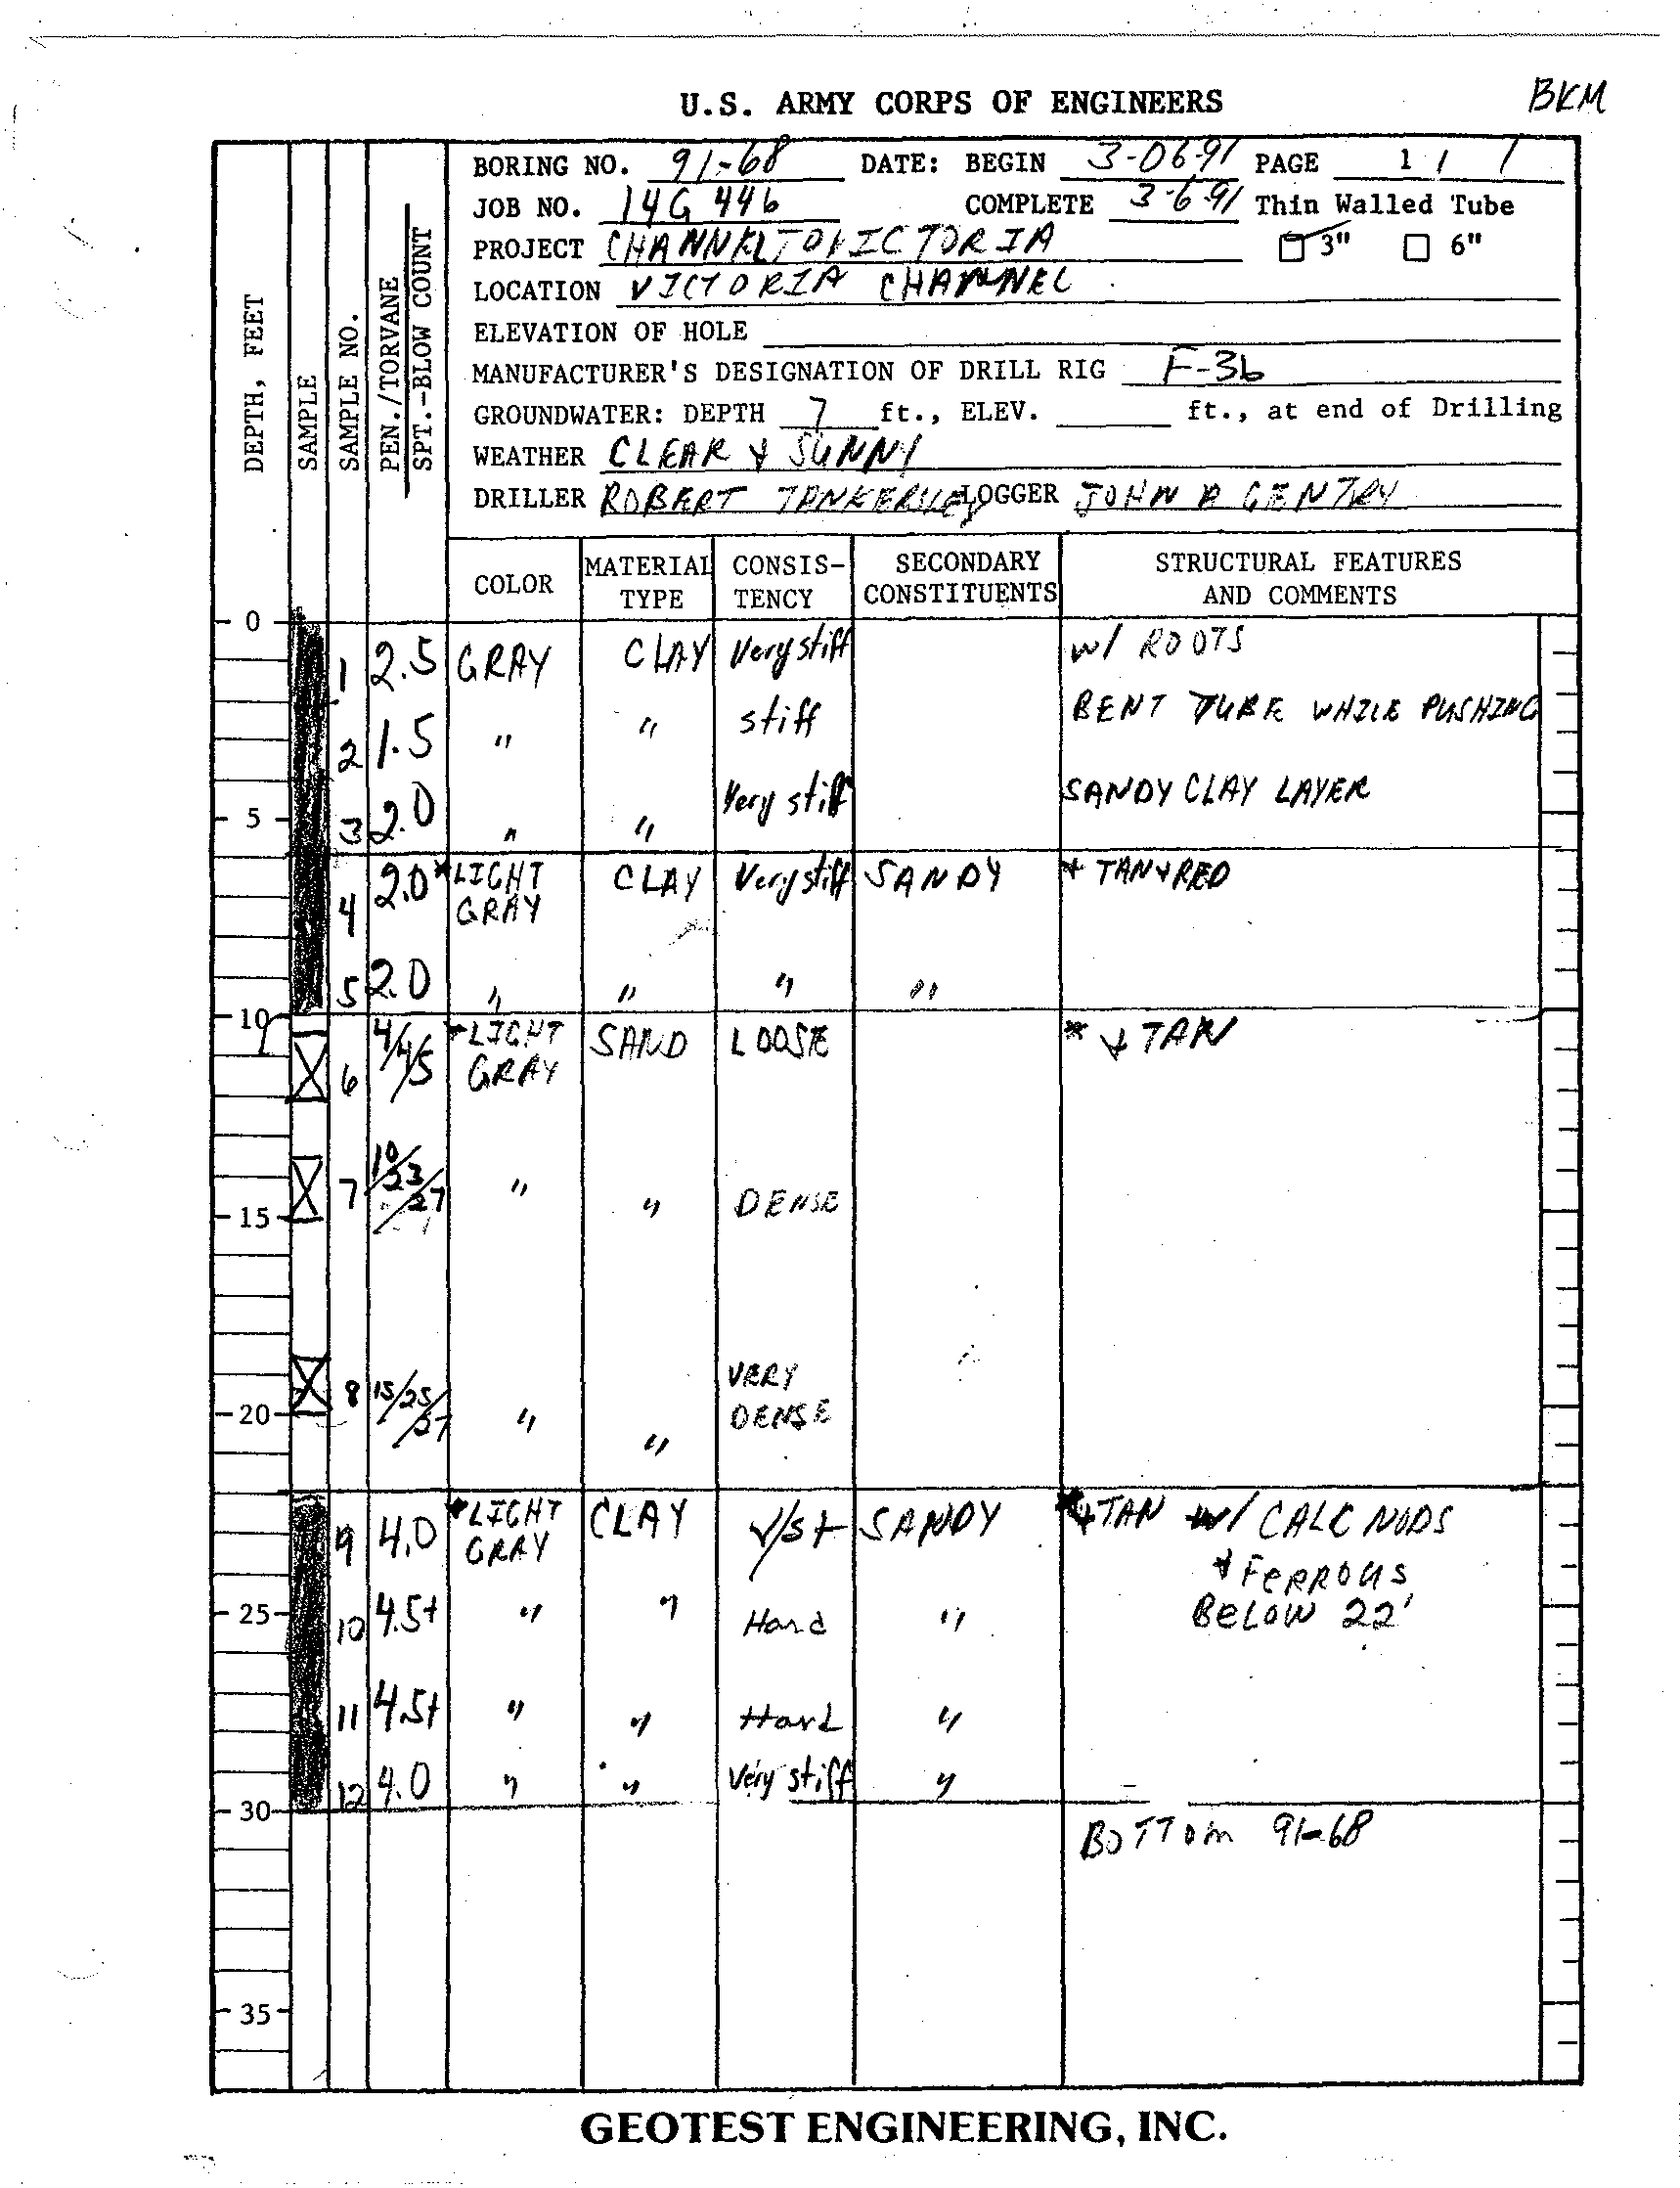 U.S. ARMY CORPS OF ENGINEERS
BKM
BORING NO. 91-68 DATE: BEGIN 3-06-91 PAGE 1 / 1
JOB NO. 14G 446 COMPLETE 3-6-91 Thin Walled Tube
PROJECT CHANNEL TO VICTORIA 3" 6"
LOCATION VICTORIA CHANNEL
ELEVATION OF HOLE
MANUFACTURER'S DESIGNATION OF DRILL RIG F-36
GROUNDWATER: DEPTH 7 ft., ELEV. ft., at end of Drilling
WEATHER CLEAR & SUNNY
DRILLER ROBERT LOGGER JOHN A GENTRY
DEPTH, FEET
SAMPLE
SAMPLE NO.
PEN./TORVANE
SPT.-BLOW COUNT
COLOR
MATERIAL TYPE
CONSIS-TENCY
SECONDARY CONSTITUENTS
STRUCTURAL FEATURES AND COMMENTS
0
1 2.5 GRAY CLAY Very stiff w/ ROOTS
2 1.5 " " stiff BENT TUBE WHILE PUSHING
5 3 2.0 " " Very stiff SANDY CLAY LAYER
4 2.0 *LIGHT GRAY CLAY Very stiff SANDY * TAN & RED
5 2.0 " " " "
10
6 4/4/5 *LIGHT GRAY SAND LOOSE * & TAN
7 10/23/27 " " DENSE
15
8 15/25/27 " " VERY DENSE
20
9 4.0 *LIGHT GRAY CLAY v/st SANDY *& TAN w/ CALC NODS
& FERROUS
BELOW 22'
25 10 4.5+ " " Hard "
11 4.5+ " " Hard "
12 4.0 " " Very stiff "
30
BOTTOM 91-68
35
GEOTEST ENGINEERING, INC.